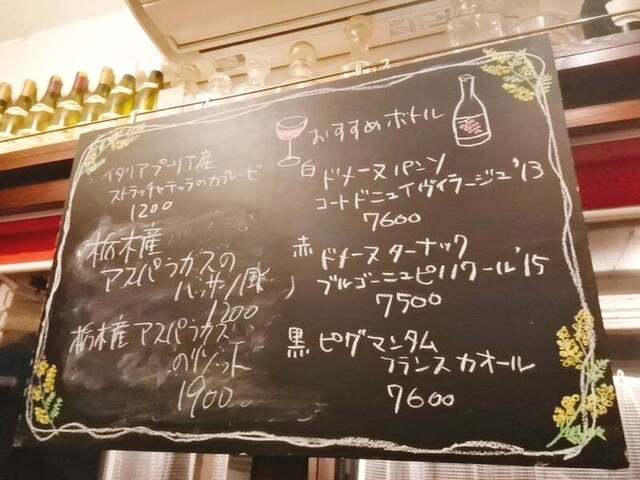 イタリアプーリア産
ストラッチャテッラのカプレーゼ
1200
栃木産
アスパラガスの
バッサーノ風
1200
栃木産アスパラガス
のリゾット
1900
おすすめボトル
白 ドメーヌパンソ
コートドニュイヴィラージュ'13
7600
赤 ドメーヌターナック
ブルゴーニュピノノワール'15
7500
黒 ピグマンタム
フランスカオール
7600